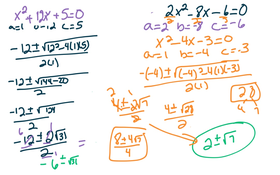 x²+12x+5=0
a=1 b=12 c=5
-12±√(12²-4(1)(5)
2(1)
-12±√144-20
2
-12±√124
2
-12±2√31
2
=
-6±√31
2x²-8x-6=0
2 2 2
a=2 b=-8 c=-6
x²-4x-3=0
a=1 b=-4 c=-3
-(-4)±√(-4)²-4(1)(-3)
2(1)
4±2√7
2
4±√28
2
28
4 7
8±4√7
4
2±√7